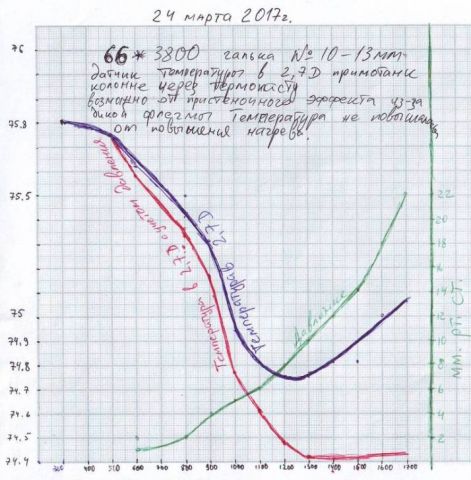 24 марта 2017г.
76
66*3800 галька № 10-13мм
датчик температуры в 2,7D примотан к
колонне через термопасту
возможно от пристеночного эффекта из-за
дикой флегмы температура не повышалась
от повышения нагрева!
75.8
75.5
75
74.9
74.8
74.6
74.5
74.4
Температура в 2,7D с учетом давления
Температура в 2,7D
Давление
22
20
18
16
14
12
10
8
6
4
2
мм. рт. ст.
400 500 600 700 800 900 1000 1100 1200 1300 1400 1500 1600 1700